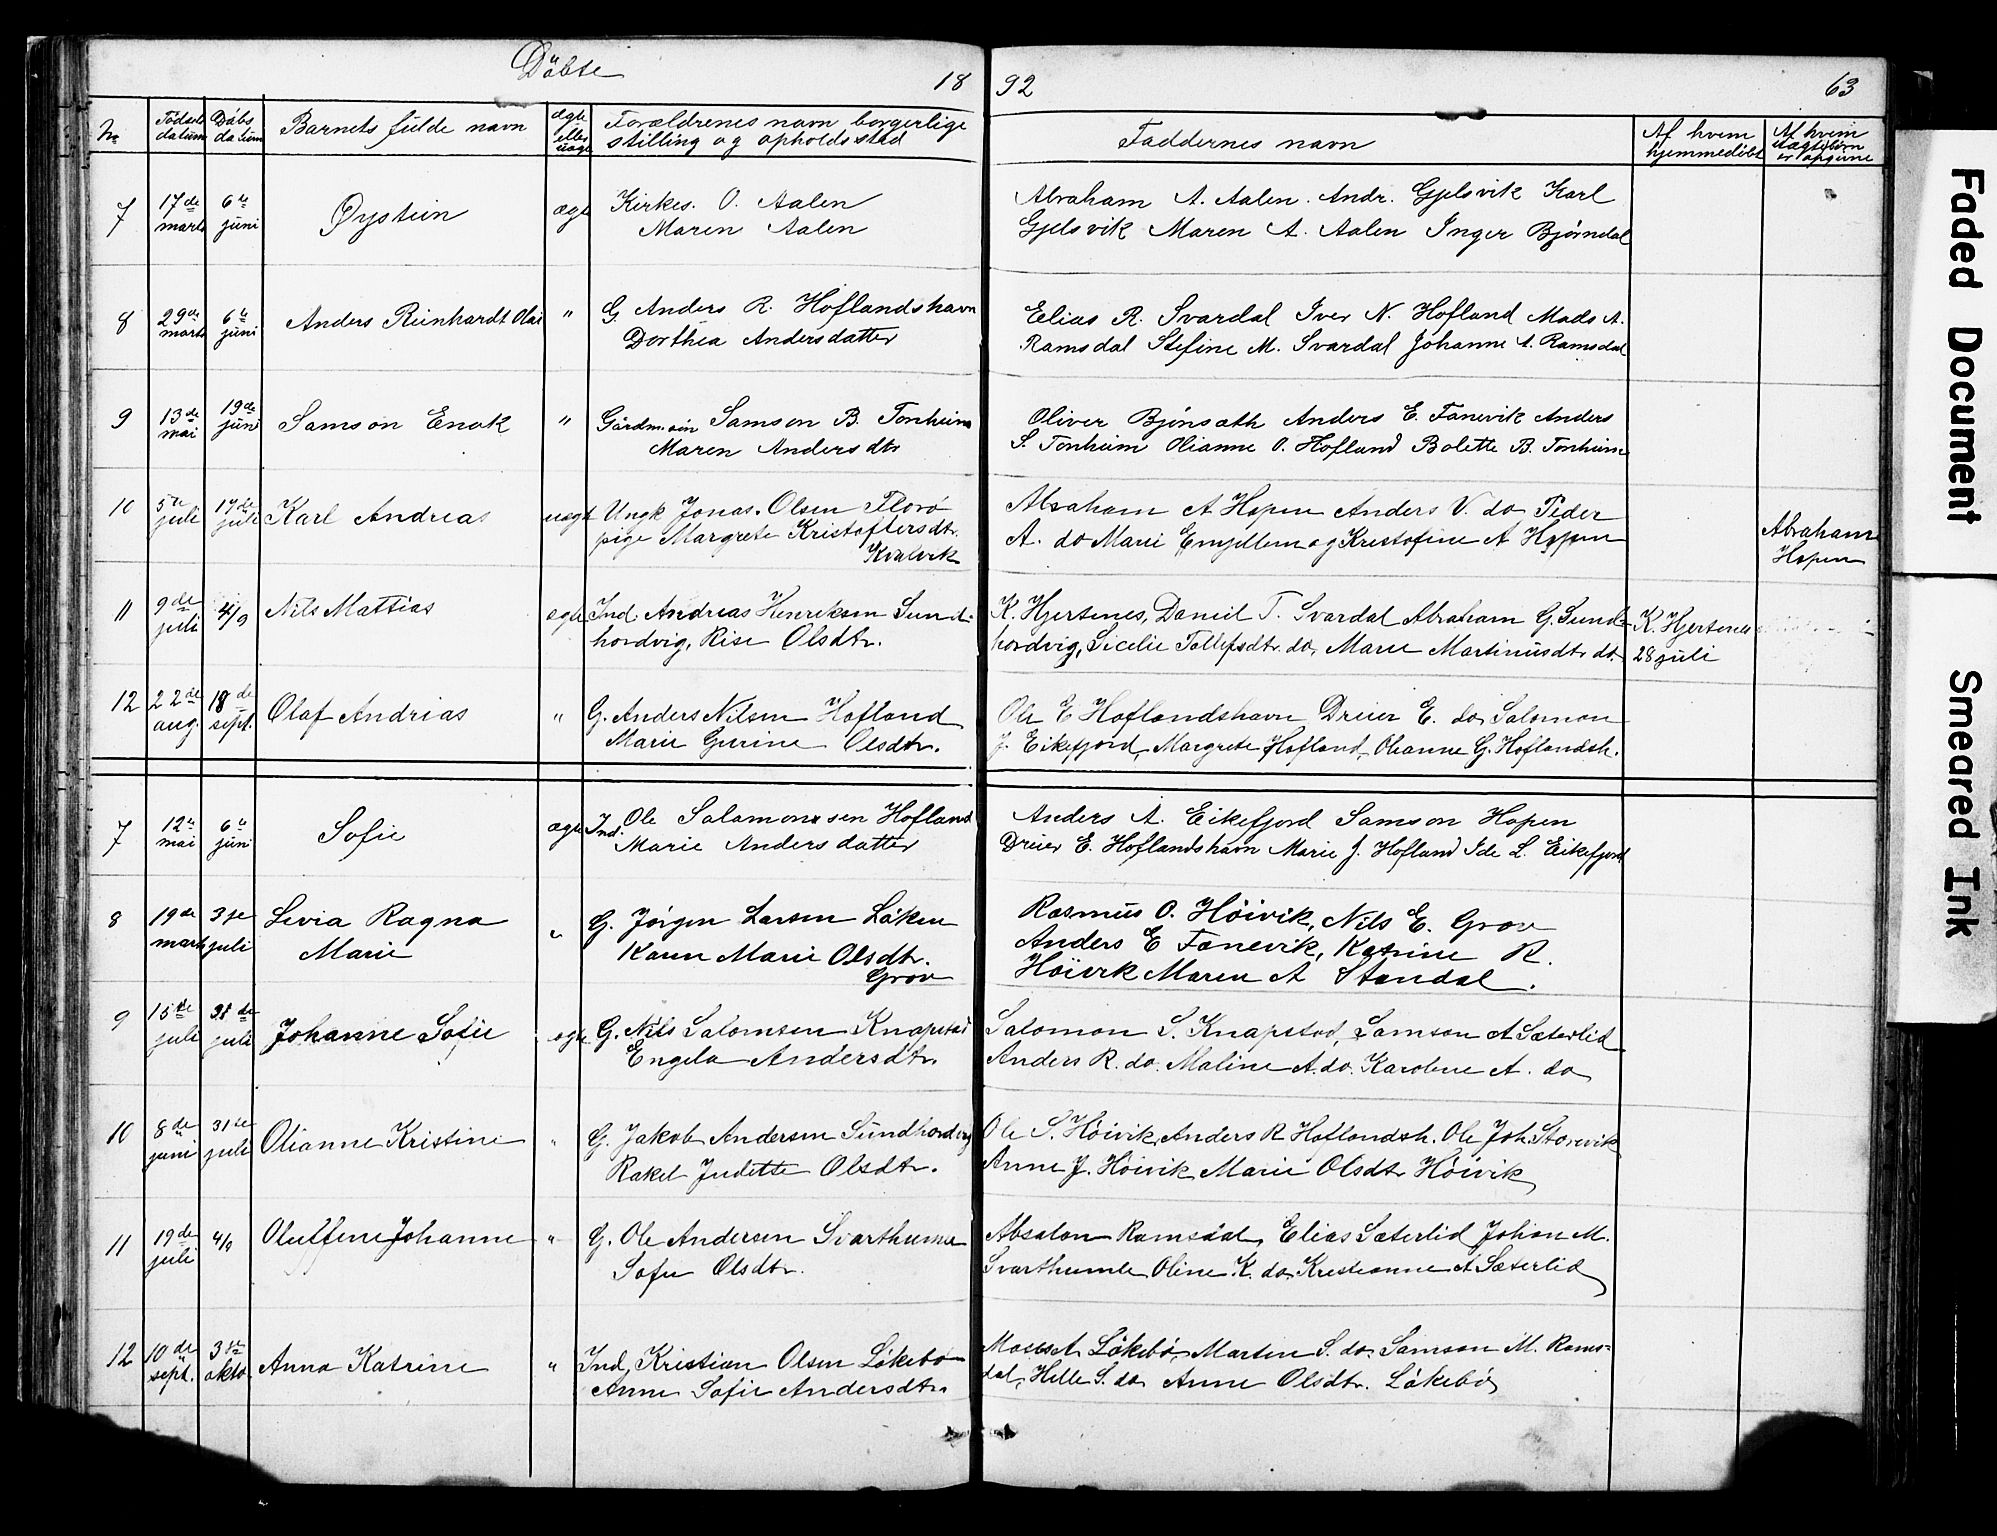 Döbte
18 92 63
No
Födsels datum
Döbs datum
Barnets fulde navn
ægte eller uægte
Forældrenes navn borgerlige
stilling og opholdssted
Faddernes navn
Af hvem
hjemmedöbt
Af hvem
uægtebörn
er opgivne
7 17de marts 6te juni Øystein ægte Kirkes. O. Aalen
Maren Aalen
Abraham A. Aalen. Andr. Gjelsvik Karl
Gjelsvik Maren A. Aalen Inger Bjørndal
8 29de marts 6te juni Anders Reinhardt Olai " G. Anders R. Hoflandshavn
Dorthea Andersdatter
Elias R. Svardal Iver N. Hofland Mads A.
Ramsdal Stefine M. Svardal Johanne A. Ramsdal
9 13de mai 19de juni Samson Enok " Gårdm.søn Samson B. Tonheim
Maren Andersdtr
Oliver Bjönsæth Anders E. Fanevik Anders
S. Tonheim Olianne O. Hofland Bolette B. Tonheim
10 5te juli 17de juli Karl Andreas uægte Ungk Jonas. Olsen Florø
pige Margrete Kristoffersdtr.
Kvalvik
Abraham A Hopen Anders V. do Peder
A. do Marie Emjellem og Kristofine A Hopen
Abraham
Hopen
11 9de juli 4/9 Nils Mattias ægte Ind. Andreas Henriksen Sund-
hordvig, Rise Olsdtr.
K. Hjertenes, Daneil T. Svardal Abraham G. Sund-
hordvig, Sicelie Tollefsdtr. do, Marie Martinusdtr do.
K. Hjertenes
28 juli
12 22de aug. 18de sept. Olaf Andrias " G. Anders Nilsen Hofland
Marie Gurine Olsdtr.
Ole E Hoflandshavn Dreier E. do Salomon
J. Eikefjord, Margrete Hofland, Olianne G. Hoflandsh.
7 12te mai 6te juni Sofie ægte Ind. Ole Salomonsen Hofland
Marie Andersdatter
Anders A. Eikefjord Samson Hopen
Dreier E. Hoflandshavn Marie J. Hofland Ide L. Eikefjord
8 19de marts 3je juli Sevia Ragna
Marie
" G. Jörgen Larsen Löken
Karen Marie Olsdtr.
Grov
Rasmus O. Höivik, Nils E. Grov
Anders E Fanevik, Katrine R.
Höivik Maren A Standal.
9 15de juli 31de juli Johanne Sofie ægte G. Nils Salomsen Knapstad
Engela Andersdtr.
Salomon S. Knapstad, Samson A Sæterlid
Anders R. do. Maline A. do. Karoline A. do
10 8de juni 31te juli Olianne Kristine " G. Jakob Andersen Sundhordvig
Rakel Judette Olsdtr.
Ole S. Höivik, Anders R Hoflandsh. Ole Joh. Storevik
Anne J. Höivik Marie Olsdtr Höivik
11 19de juli 4/9 Oluffene Johanne " G. Ole Andersen Svarthumle
Sofie Olsdtr.
Absalon Ramsdal, Elias Sæterlid Johan M.
Svarthumle Oline K. do Kristianne A Sæterlid
12 10de sept. okto. Anna Katrine " Ind, Kristian Olsen Lökebö
Anne Sofie Andersdtr.
Moses A. Lökebö, Martin S. do. Samson M. Rams-
dal, Helle S. do Anne Olsdtr. Lökebö
Faded Document
Smeared Ink